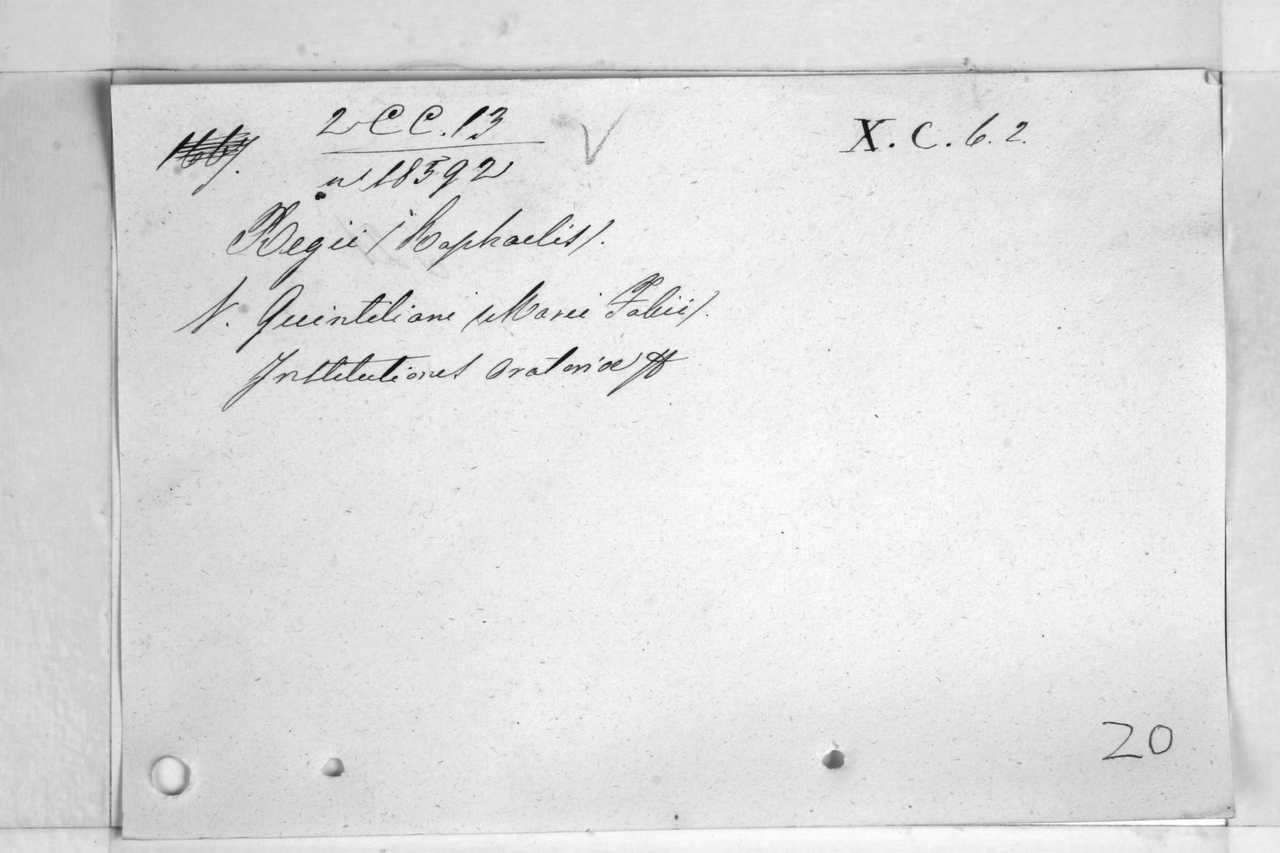 2 CC. 13
X. C. 6. 2.
n° 18592
Regii (Raphaelis).
V. Quintiliani (Marci Fabii).
Institutiones oratoriæ
20